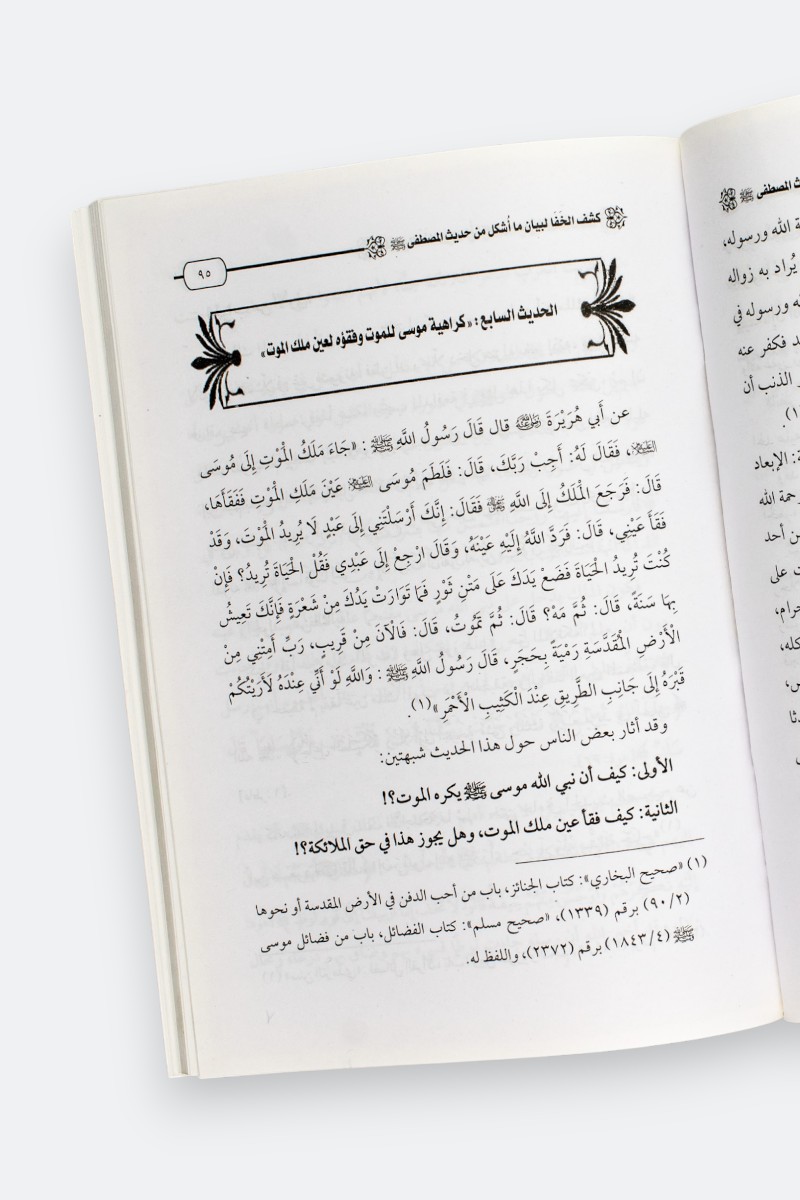 كشف الخَفَا لبيان ما أُشكل من حديث المصطفى ﷺ
٩٥
الحديث السابع: «كراهية موسى للموت وفقؤه لعين ملك الموت»
عن أَبي هُرَيْرَةَ رضي الله عنه قال قَالَ رَسُولُ اللَّهِ ﷺ: «جَاءَ مَلَكُ الْمَوْتِ إِلَى مُوسَى
عليه السلام، فَقَالَ لَهُ: أَجِبْ رَبَّكَ، قَالَ: فَلَطَمَ مُوسَى عليه السلام عَيْنَ مَلَكِ الْمَوْتِ فَفَقَأَهَا،
قَالَ: فَرَجَعَ الْمَلَكُ إِلَى اللَّهِ ﷻ فَقَالَ: إِنَّكَ أَرْسَلْتَنِي إِلَى عَبْدٍ لَا يُرِيدُ الْمَوْتَ، وَقَدْ
فَقَأَ عَيْنِي، قَالَ: فَرَدَّ اللَّهُ إِلَيْهِ عَيْنَهُ، وَقَالَ ارْجِعْ إِلَى عَبْدِي فَقُلْ الْحَيَاةَ تُرِيدُ؟ فَإِنْ
كُنْتَ تُرِيدُ الْحَيَاةَ فَضَعْ يَدَكَ عَلَى مَتْنِ ثَوْرٍ فَمَا تَوَارَتْ يَدُكَ مِنْ شَعْرَةٍ فَإِنَّكَ تَعِيشُ
بِهَا سَنَةً، قَالَ: ثُمَّ مَهْ؟ قَالَ: ثُمَّ تَمُوتُ، قَالَ: فَالْآنَ مِنْ قَرِيبٍ، رَبِّ أَمِتْنِي مِنْ
الْأَرْضِ الْمُقَدَّسَةِ رَمْيَةً بِحَجَرٍ، قَالَ رَسُولُ اللَّهِ ﷺ: وَاللَّهِ لَوْ أَنِّي عِنْدَهُ لَأَرَيْتُكُمْ
قَبْرَهُ إِلَى جَانِبِ الطَّرِيقِ عِنْدَ الْكَثِيبِ الْأَحْمَرِ»(١).
وقد أثار بعض الناس حول هذا الحديث شبهتين:
الأولى: كيف أن نبي الله موسى ﷺ يكره الموت؟!
الثانية: كيف فقأ عين ملك الموت، وهل يجوز هذا في حق الملائكة؟!
(١) «صحيح البخاري»: كتاب الجنائز، باب من أحب الدفن في الأرض المقدسة أو نحوها
(٢/ ٩٠) برقم (١٣٣٩)، «صحيح مسلم»: كتاب الفضائل، باب من فضائل موسى
ﷺ (٤/ ١٨٤٣) برقم (٢٣٧٢)، واللفظ له.
المصطفى ﷺ
الله ورسوله،
يُراد به زواله
ورسوله في
فكفر عنه
الذنب أن
الإبعاد
رحمة الله
من أحد
على